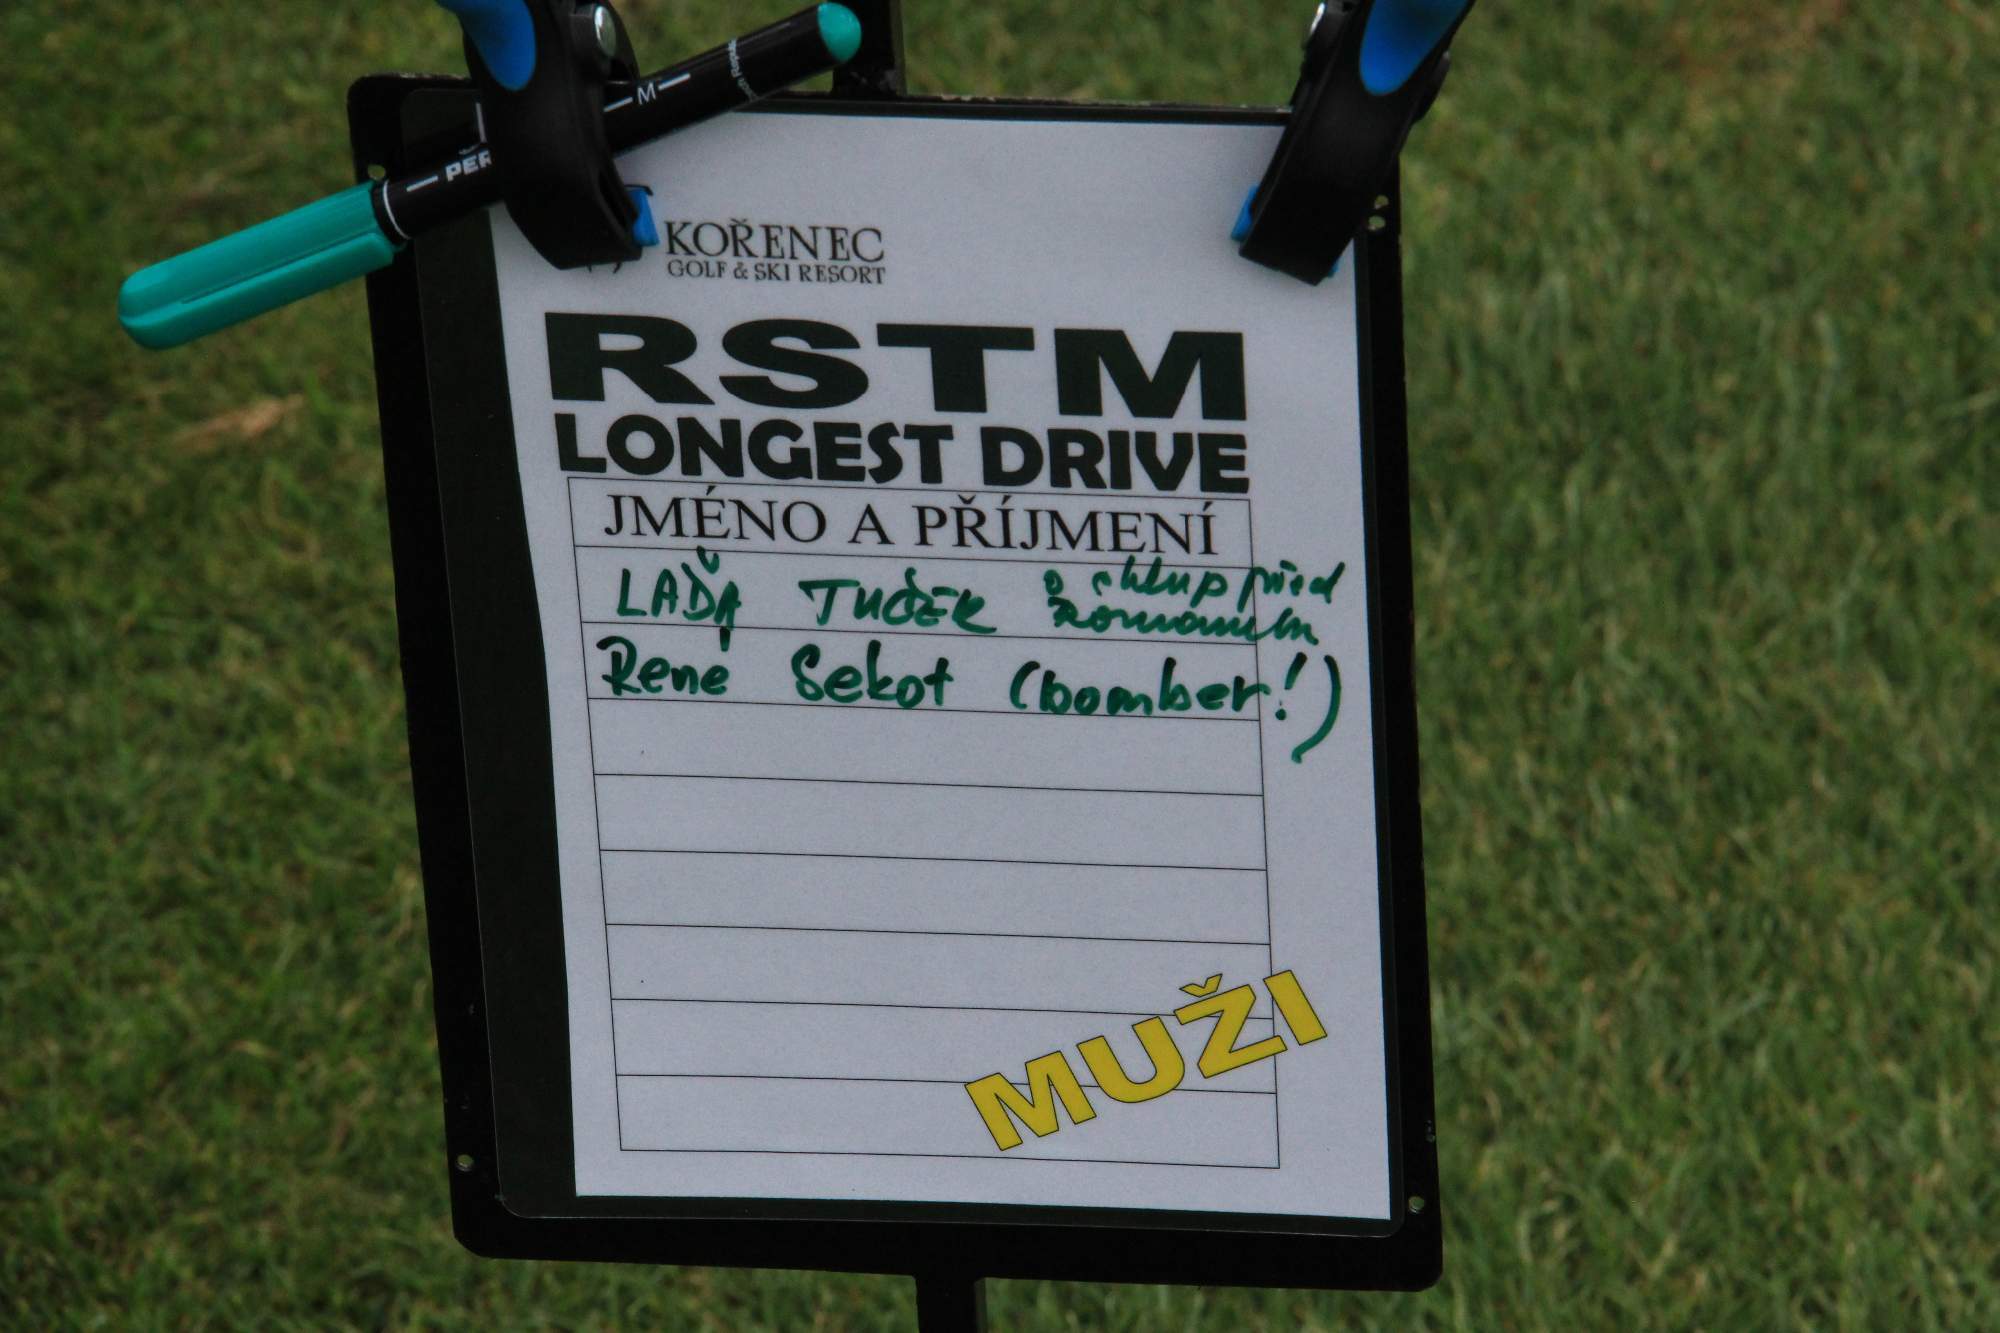 M
PER
KOŘENEC
GOLF & SKI RESORT
RSTM
LONGEST DRIVE
JMÉNO A PŘÍJMENÍ
LAĎA TUČEK o chlup před
Romanem
René Sekot (bomber!)
MUŽI